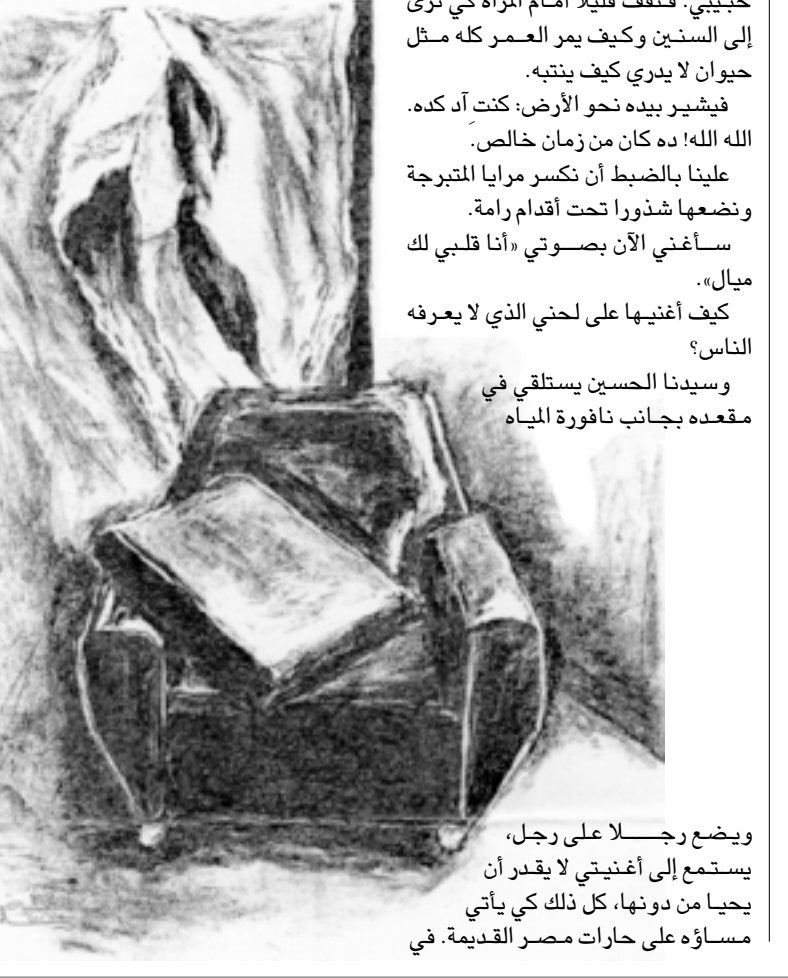 حبيبي. فنقف قليلا أمام المرآة كي نرى
إلى السنين وكيف يمر العمر كله مثل
حيوان لا يدري كيف ينتبه.
فيشير بيده نحو الأرض: كنت آد كده.
الله الله! ده كان من زمان خالص.
علينا بالضبط أن نكسر مرايا المتبرجة
ونضعها شذورا تحت أقدام رامة.
سأغني الآن بصوتي «أنا قلبي لك
ميال».
كيف أغنيها على لحني الذي لا يعرفه
الناس؟
وسيدنا الحسين يستلقي في
مقعده بجانب نافورة المياه
ويضع رجلا على رجل،
يستمع إلى أغنيتي لا يقدر أن
يحيا من دونها، كل ذلك كي يأتي
مساؤه على حارات مصر القديمة. في